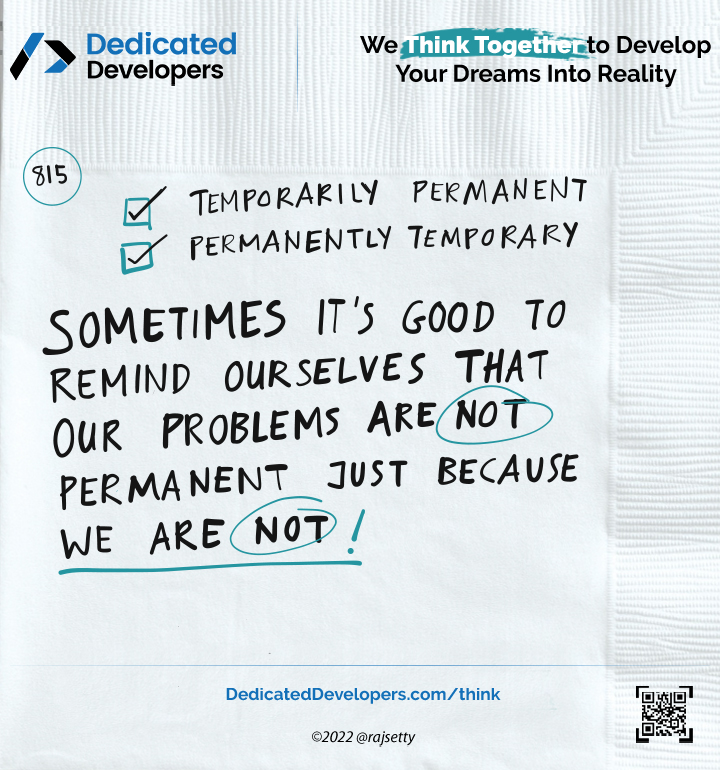 Dedicated
Developers
We Think Together to Develop
Your Dreams Into Reality
815
TEMPORARILY PERMANENT
PERMANENTLY TEMPORARY
SOMETIMES IT'S GOOD TO
REMIND OURSELVES THAT
OUR PROBLEMS ARE NOT
PERMANENT JUST BECAUSE
WE ARE NOT!
DedicatedDevelopers.com/think
©2022 @rajsetty